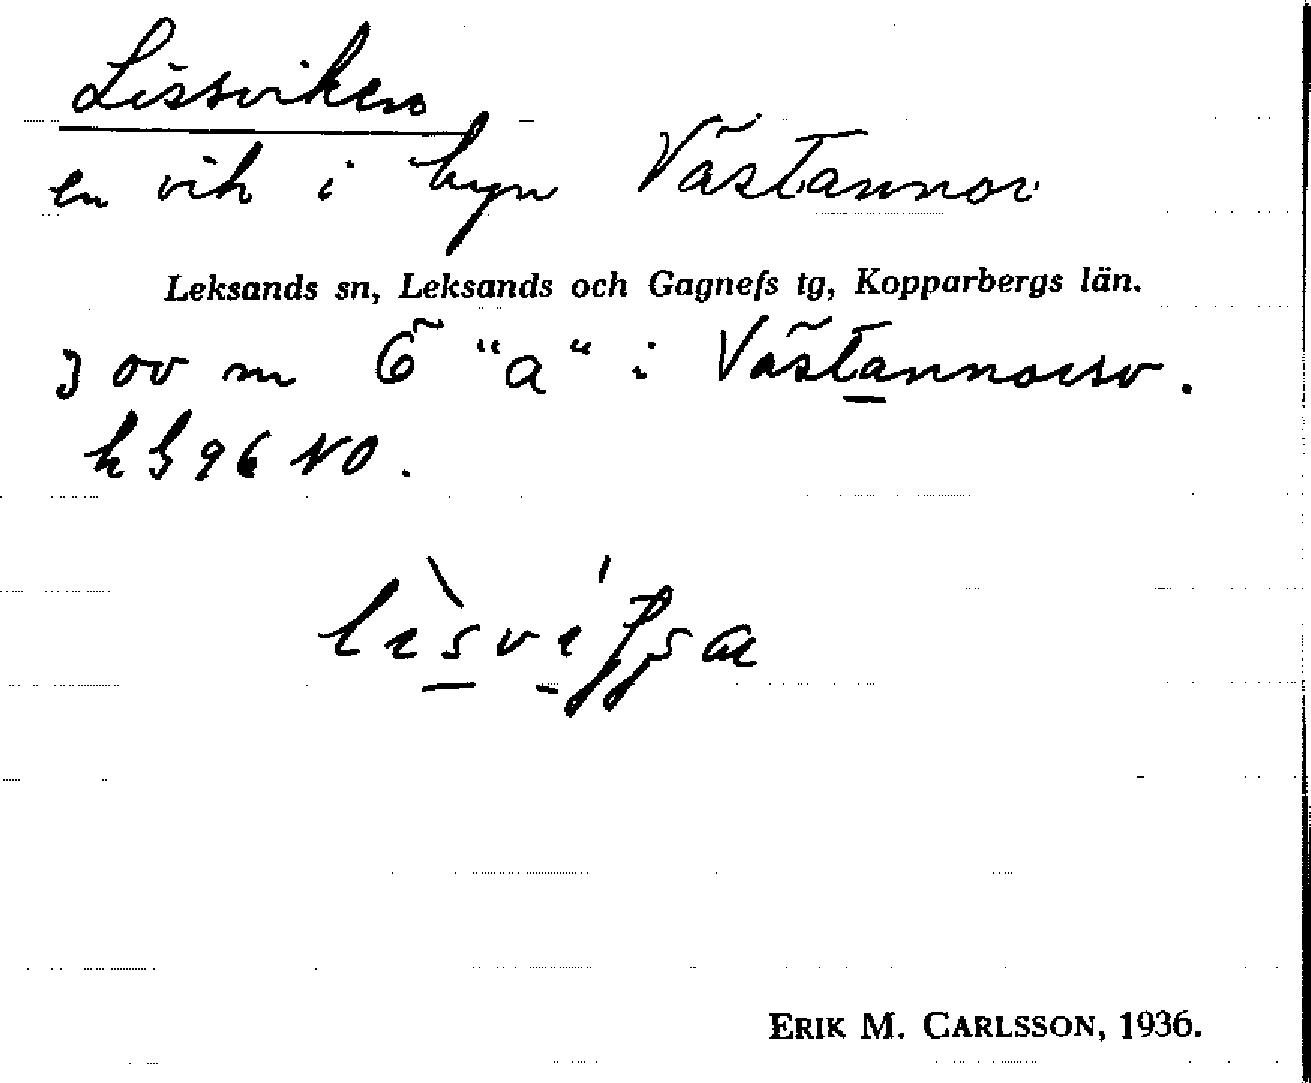 Lissviken
en vik i byn Västannor
Leksands sn, Leksands och Gagnefs tg, Kopparbergs län.
3 ov m Ö "a" i Västannorsv.
k bl 96 NO.
ERIK M. CARLSSON, 1936.